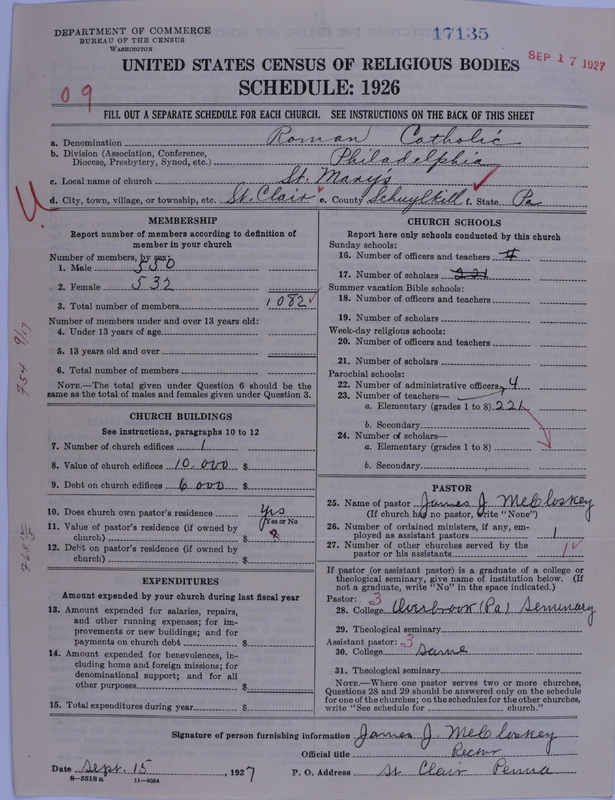 DEPARTMENT OF COMMERCE
BUREAU OF THE CENSUS
WASHINGTON
17135
SEP 17 1927
UNITED STATES CENSUS OF RELIGIOUS BODIES
SCHEDULE: 1926
09
FILL OUT A SEPARATE SCHEDULE FOR EACH CHURCH. SEE INSTRUCTIONS ON THE BACK OF THIS SHEET
a. Denomination Roman Catholic
b. Division (Association, Conference, Diocese, Presbytery, Synod, etc.) Philadelphia
c. Local name of church St. Mary's
d. City, town, village, or township, etc. St. Clair e. County Schuylkill f. State Pa
MEMBERSHIP
Report number of members according to definition of
member in your church
Number of members, by sex:
1. Male 550
2. Female 532
3. Total number of members 1082
Number of members under and over 13 years old:
4. Under 13 years of age
5. 13 years old and over
6. Total number of members
NOTE.—The total given under Question 6 should be the
same as the total of males and females given under Question 3.
CHURCH BUILDINGS
See instructions, paragraphs 10 to 12
7. Number of church edifices 1
8. Value of church edifices 10,000 $
9. Debt on church edifices 6000 $
10. Does church own pastor's residence yes
Yes or No
11. Value of pastor's residence (if owned by
church) $
12. Debt on pastor's residence (if owned by
church) $
EXPENDITURES
Amount expended by your church during last fiscal year
13. Amount expended for salaries, repairs,
and other running expenses; for im-
provements or new buildings; and for
payments on church debt $
14. Amount expended for benevolences, in-
cluding home and foreign missions; for
denominational support; and for all
other purposes $
15. Total expenditures during year $
CHURCH SCHOOLS
Report here only schools conducted by this church
Sunday schools:
16. Number of officers and teachers 4
17. Number of scholars 221
Summer vacation Bible schools:
18. Number of officers and teachers
19. Number of scholars
Week-day religious schools:
20. Number of officers and teachers
21. Number of scholars
Parochial schools:
22. Number of administrative officers 4
23. Number of teachers—
a. Elementary (grades 1 to 8) 221
b. Secondary
24. Number of scholars—
a. Elementary (grades 1 to 8)
b. Secondary
PASTOR
25. Name of pastor James J. McCloskey
(If church has no pastor, write "None")
26. Number of ordained ministers, if any, em-
ployed as assistant pastors 1
27. Number of other churches served by the
pastor or his assistants 1
If pastor (or assistant pastor) is a graduate of a college or
theological seminary, give name of institution below. (If
not a graduate, write "No" in the space indicated.)
Pastor: 3
28. College Overbrook (Pa) Seminary
29. Theological seminary
Assistant pastor: 3
30. College same
31. Theological seminary
NOTE.—Where one pastor serves two or more churches,
Questions 28 and 29 should be answered only on the schedule
for one of the churches; on the schedules for the other churches,
write "See schedule for church."
Signature of person furnishing information James J. McCloskey
Official title Rector
Date Sept. 15, 1927 P. O. Address St Clair Penna
8—5518a 11—9054
754 9/17